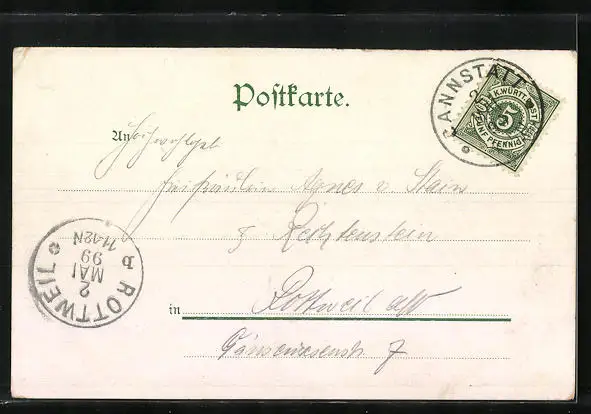 Postkarte.
CANNSTATT
K. WÜRTTEMB. POST
5
FÜNF PFENNIG
An Hochwohlgeb
Freifräulein Agnes v. Stain
z Rechtenstein
in Rottweil a/N
7
ROTTWEIL
2
MAI
99
11-12N
b